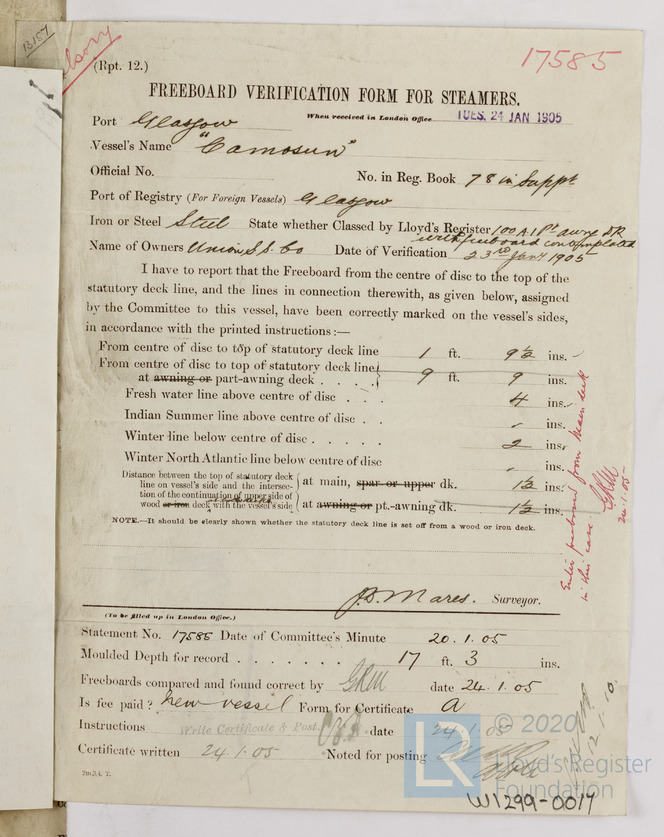 B157
17585
(Rpt. 12.)
FREEBOARD VERIFICATION FORM FOR STEAMERS.
When received in London Office TUES. 24 JAN 1905
Port Glasgow
Vessel's Name "Camosun"
Official No. No. in Reg. Book 78 in Suppt
Port of Registry (For Foreign Vessels) Glasgow
Iron or Steel Steel State whether Classed by Lloyd's Register 100A1 Pt awng Dk
with freeboard contemplated
Name of Owners Union S.S. Co Date of Verification 23rd Jany 1905
I have to report that the Freeboard from the centre of disc to the top of the
statutory deck line, and the lines in connection therewith, as given below, assigned
by the Committee to this vessel, have been correctly marked on the vessel's sides,
in accordance with the printed instructions:—
From centre of disc to top of statutory deck line 1 ft. 9½ ins.
From centre of disc to top of statutory deck line
at awning or part-awning deck . . . . 9 ft. 9 ins.
Fresh water line above centre of disc . . . 4 ins.
Indian Summer line above centre of disc . . - ins.
Winter line below centre of disc . . . . . 2 ins.
Winter North Atlantic line below centre of disc - ins.
Distance between the top of statutory deck
line on vessel's side and the intersec-
tion of the continuation of upper side of
wood or iron deck with the vessel's side
at main, spar or upper dk. 1½ ins.
at awning or pt.-awning dk. 1½ ins.
NOTE.—It should be clearly shown whether the statutory deck line is set off from a wood or iron deck.
Enter freeboard from Main deck
in this case GRM
24.1.05
J.D. Mares. Surveyor.
(To be filled up in London Office.)
Statement No. 17585 Date of Committee's Minute 20.1.05
Moulded Depth for record . . . . . . . 17 ft. 3 ins.
Freeboards compared and found correct by GRM date 24.1.05
Is fee paid? New vessel Form for Certificate A
Instructions Write Certificate & Post. date 24.1.05
Certificate written 24.1.05 Noted for posting
2m,3,4, T.
12.1.10.
LR © 2020
Lloyd's Register
Foundation
W1299-0017